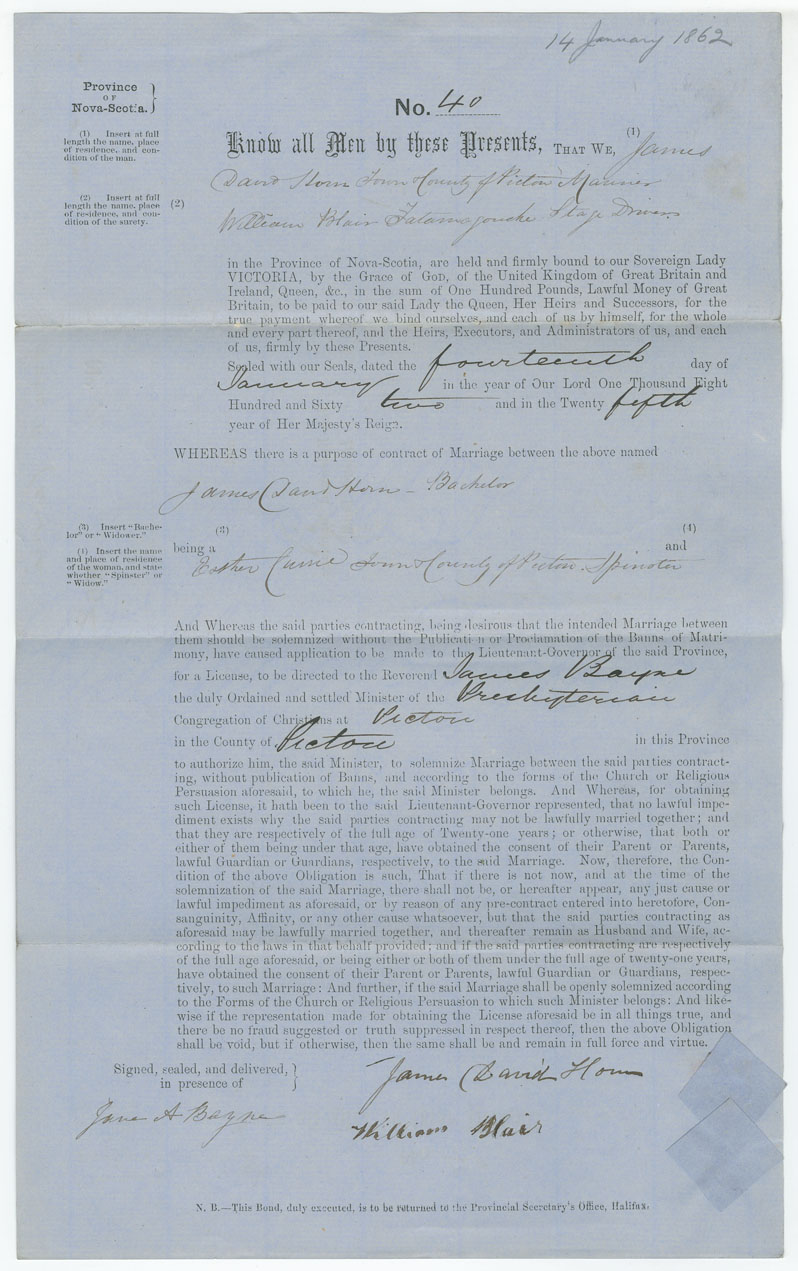 14 January 1862
Province
OF
Nova-Scotia.
No. 40
(1) Insert at full
length the name, place
of residence, and con-
dition of the man.
Know all Men by these Presents, THAT WE, (1) James
David Horn Town & County of Pictou Mariner
(2) Insert at full
length the name, place
of residence, and con-
dition of the surety.
(2) William Blair Tatamagouche Stage Driver
in the Province of Nova-Scotia, are held and firmly bound to our Sovereign Lady
VICTORIA, by the Grace of GOD, of the United Kingdom of Great Britain and
Ireland, Queen, &c., in the sum of One Hundred Pounds, Lawful Money of Great
Britain, to be paid to our said Lady the Queen, Her Heirs and Successors, for the
true payment whereof we bind ourselves, and each of us by himself, for the whole
and every part thereof, and the Heirs, Executors, and Administrators of us, and each
of us, firmly by these Presents.
Sealed with our Seals, dated the fourteenth day of
January in the year of Our Lord One Thousand Eight
Hundred and Sixty two and in the Twenty fifth
year of Her Majesty's Reign.
WHEREAS there is a purpose of contract of Marriage between the above named
James David Horn - Bachelor
(3) Insert "Bache-
lor" or "Widower."
(4) Insert the name
and place of residence
of the woman, and state
whether "Spinster" or
"Widow."
(3) (4)
being a and
Esther Currie Town & County of Pictou. Spinster
And Whereas the said parties contracting, being desirous that the intended Marriage between
them should be solemnized without the Publication or Proclamation of the Banns of Matri-
mony, have caused application to be made to the Lieutenant-Governor of the said Province,
for a License, to be directed to the Reverend James Bayne
the duly Ordained and settled Minister of the Presbyterian
Congregation of Christians at Pictou
in the County of Pictou in this Province
to authorize him, the said Minister, to solemnize Marriage between the said parties contract-
ing, without publication of Banns, and according to the forms of the Church or Religious
Persuasion aforesaid, to which he, the said Minister belongs. And Whereas, for obtaining
such License, it hath been to the said Lieutenant-Governor represented, that no lawful impe-
diment exists why the said parties contracting may not be lawfully married together; and
that they are respectively of the full age of Twenty-one years; or otherwise, that both or
either of them being under that age, have obtained the consent of their Parent or Parents,
lawful Guardian or Guardians, respectively, to the said Marriage. Now, therefore, the Con-
dition of the above Obligation is such, That if there is not now, and at the time of the
solemnization of the said Marriage, there shall not be, or hereafter appear, any just cause or
lawful impediment as aforesaid, or by reason of any pre-contract entered into heretofore, Con-
sanguinity, Affinity, or any other cause whatsoever, but that the said parties contracting as
aforesaid may be lawfully married together, and thereafter remain as Husband and Wife, ac-
cording to the laws in that behalf provided; and if the said parties contracting are respectively
of the full age aforesaid, or being either or both of them under the full age of twenty-one years,
have obtained the consent of their Parent or Parents, lawful Guardian or Guardians, respec-
tively, to such Marriage: And further, if the said Marriage shall be openly solemnized according
to the Forms of the Church or Religious Persuasion to which such Minister belongs: And like-
wise if the representation made for obtaining the License aforesaid be in all things true, and
there be no fraud suggested or truth suppressed in respect thereof, then the above Obligation
shall be void, but if otherwise, then the same shall be and remain in full force and virtue.
Signed, sealed, and delivered,
in presence of
James David Horn
Jane A Bayne
William Blair
N. B.—This Bond, duly executed, is to be returned to the Provincial Secretary's Office, Halifax.